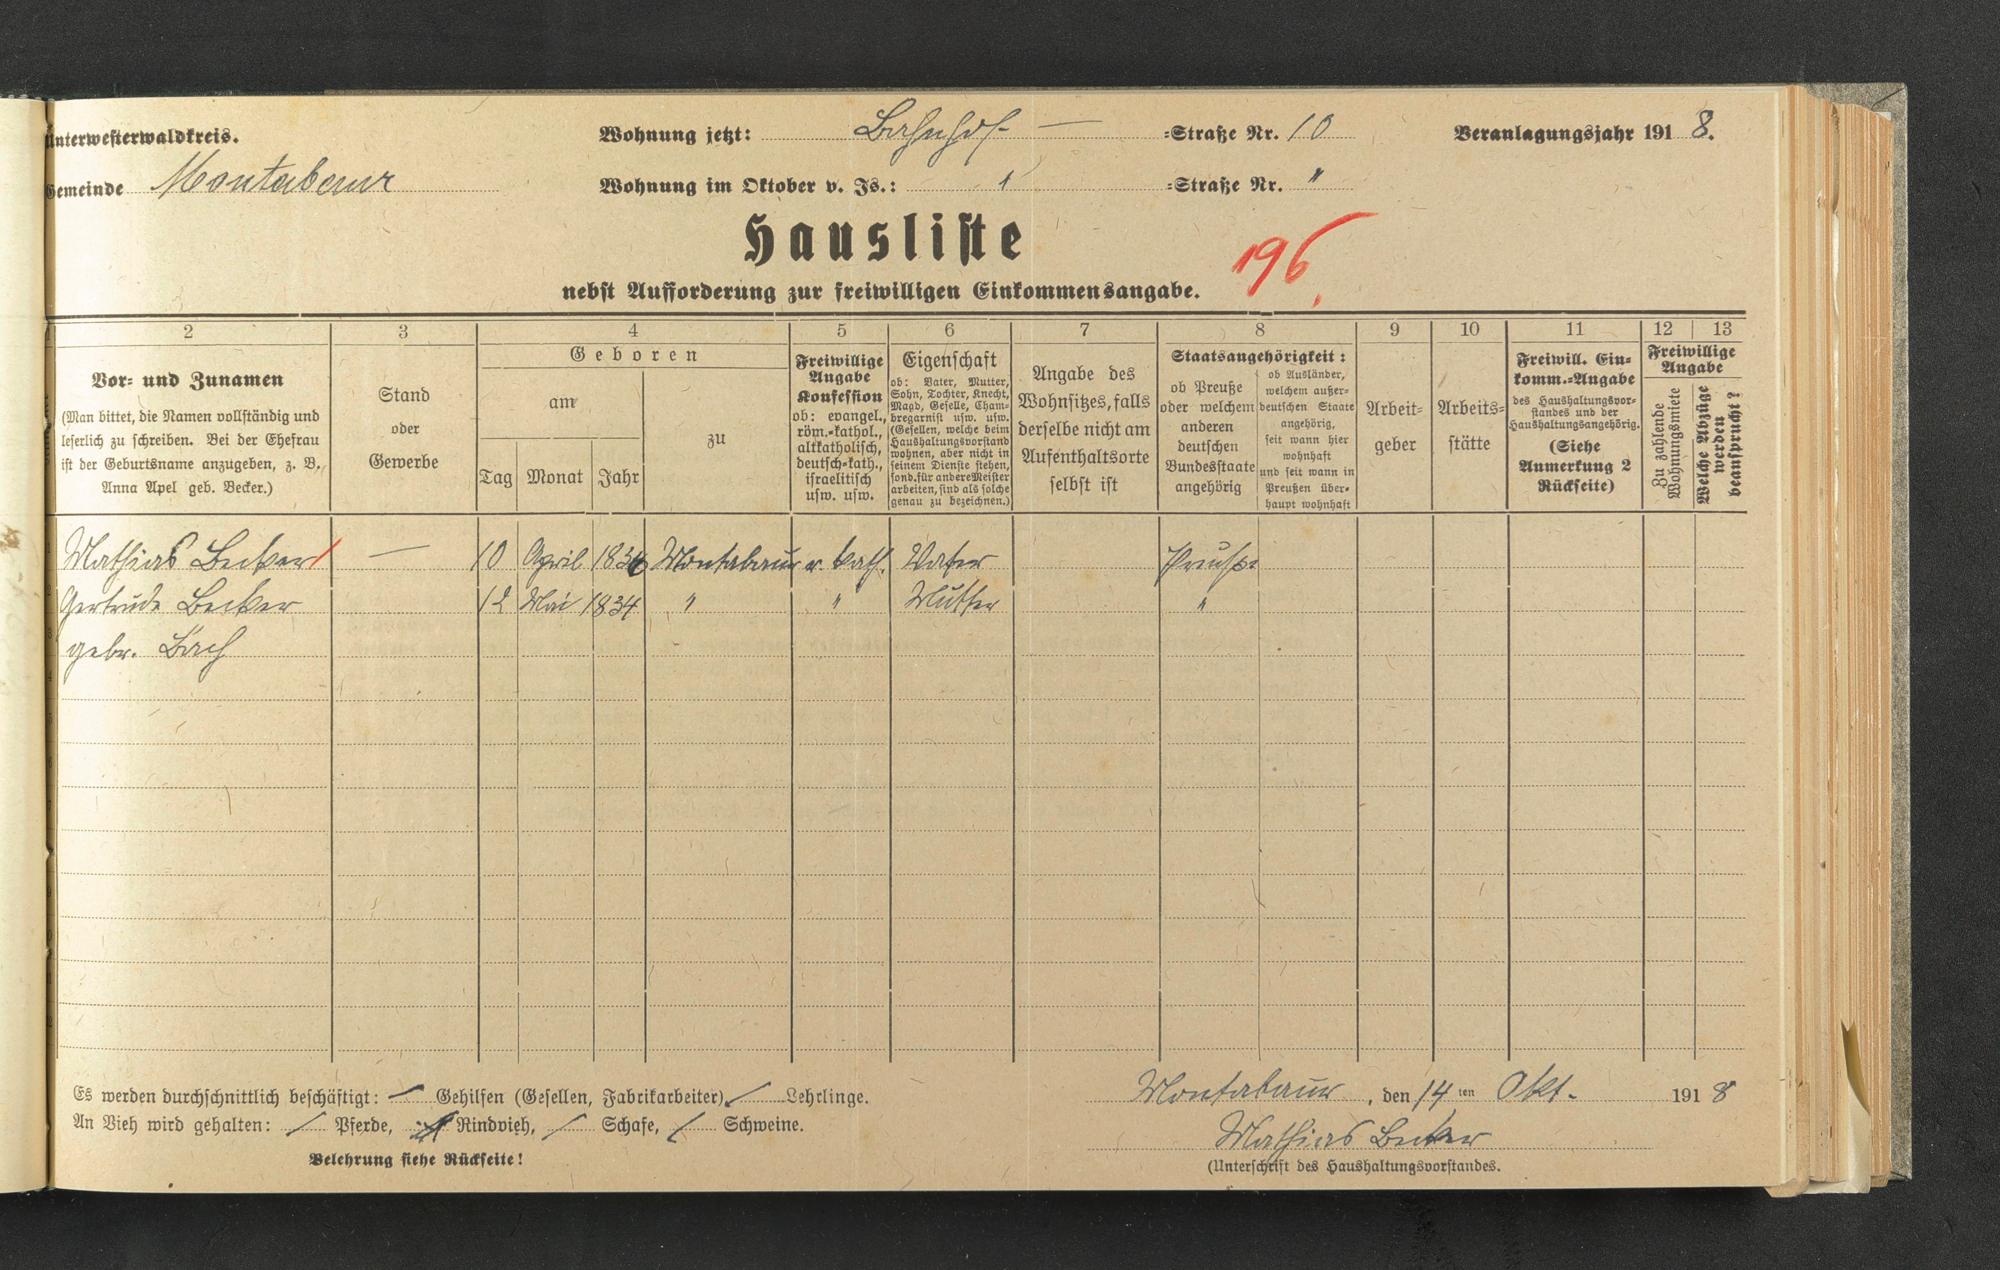 Unterwesterwaldkreis.
Wohnung jetzt: Bahnhof- — -Straße Nr. 10
Veranlagungsjahr 1918.
Gemeinde Montabaur
Wohnung im Oktober v. Js.: " -Straße Nr. "
Hausliste
196
nebst Aufforderung zur freiwilligen Einkommensangabe.
2 3 4 5 6 7 8 9 10 11 12 13
Vor- und Zunamen
(Man bittet, die Namen vollständig und
leserlich zu schreiben. Bei der Ehefrau
ist der Geburtsname anzugeben, z. B.
Anna Apel geb. Becker.)
Stand
oder
Gewerbe
Geboren
am
Tag Monat Jahr
zu
Freiwillige
Angabe
Konfession
ob: evangel.,
röm.-kathol.,
altkatholisch,
deutsch-kath.,
israelitisch
usw. usw.
Eigenschaft
ob: Vater, Mutter,
Sohn, Tochter, Knecht,
Magd, Geselle, Cham-
bregarnist usw. usw.
(Gesellen, welche beim
Haushaltungsvorstand
wohnen, aber nicht in
seinem Dienste stehen,
sond. für andere Meister
arbeiten, sind als solche
genau zu bezeichnen.)
Angabe des
Wohnsitzes, falls
derselbe nicht am
Aufenthaltsorte
selbst ist
Staatsangehörigkeit:
ob Preuße
oder welchem
anderen
deutschen
Bundesstaate
angehörig
ob Ausländer,
welchem außer-
deutschen Staate
angehörig,
seit wann hier
wohnhaft
und seit wann in
Preußen über-
haupt wohnhaft
Arbeit-
geber
Arbeits-
stätte
Freiwill. Ein-
komm.-Angabe
des Haushaltungsvor-
standes und der
Haushaltungsangehörig.
(Siehe
Anmerkung 2
Rückseite)
Freiwillige
Angabe
Zu zahlende
Wohnungsmiete
Welche Abzüge
werden
beansprucht?
Mathias Becker — 10 April 1836 Montabaur r. kath. Vater Preuße
Gertrude Becker 12 Mai 1834 " " Mutter "
gebr. Bach
Es werden durchschnittlich beschäftigt: — Gehilfen (Gesellen, Fabrikarbeiter) / Lehrlinge.
An Vieh wird gehalten: / Pferde, Rindvieh, / Schafe, / Schweine.
Belehrung siehe Rückseite!
Montabaur, den 14ten Okt. 1918
Mathias Becker
(Unterschrift des Haushaltungsvorstandes.